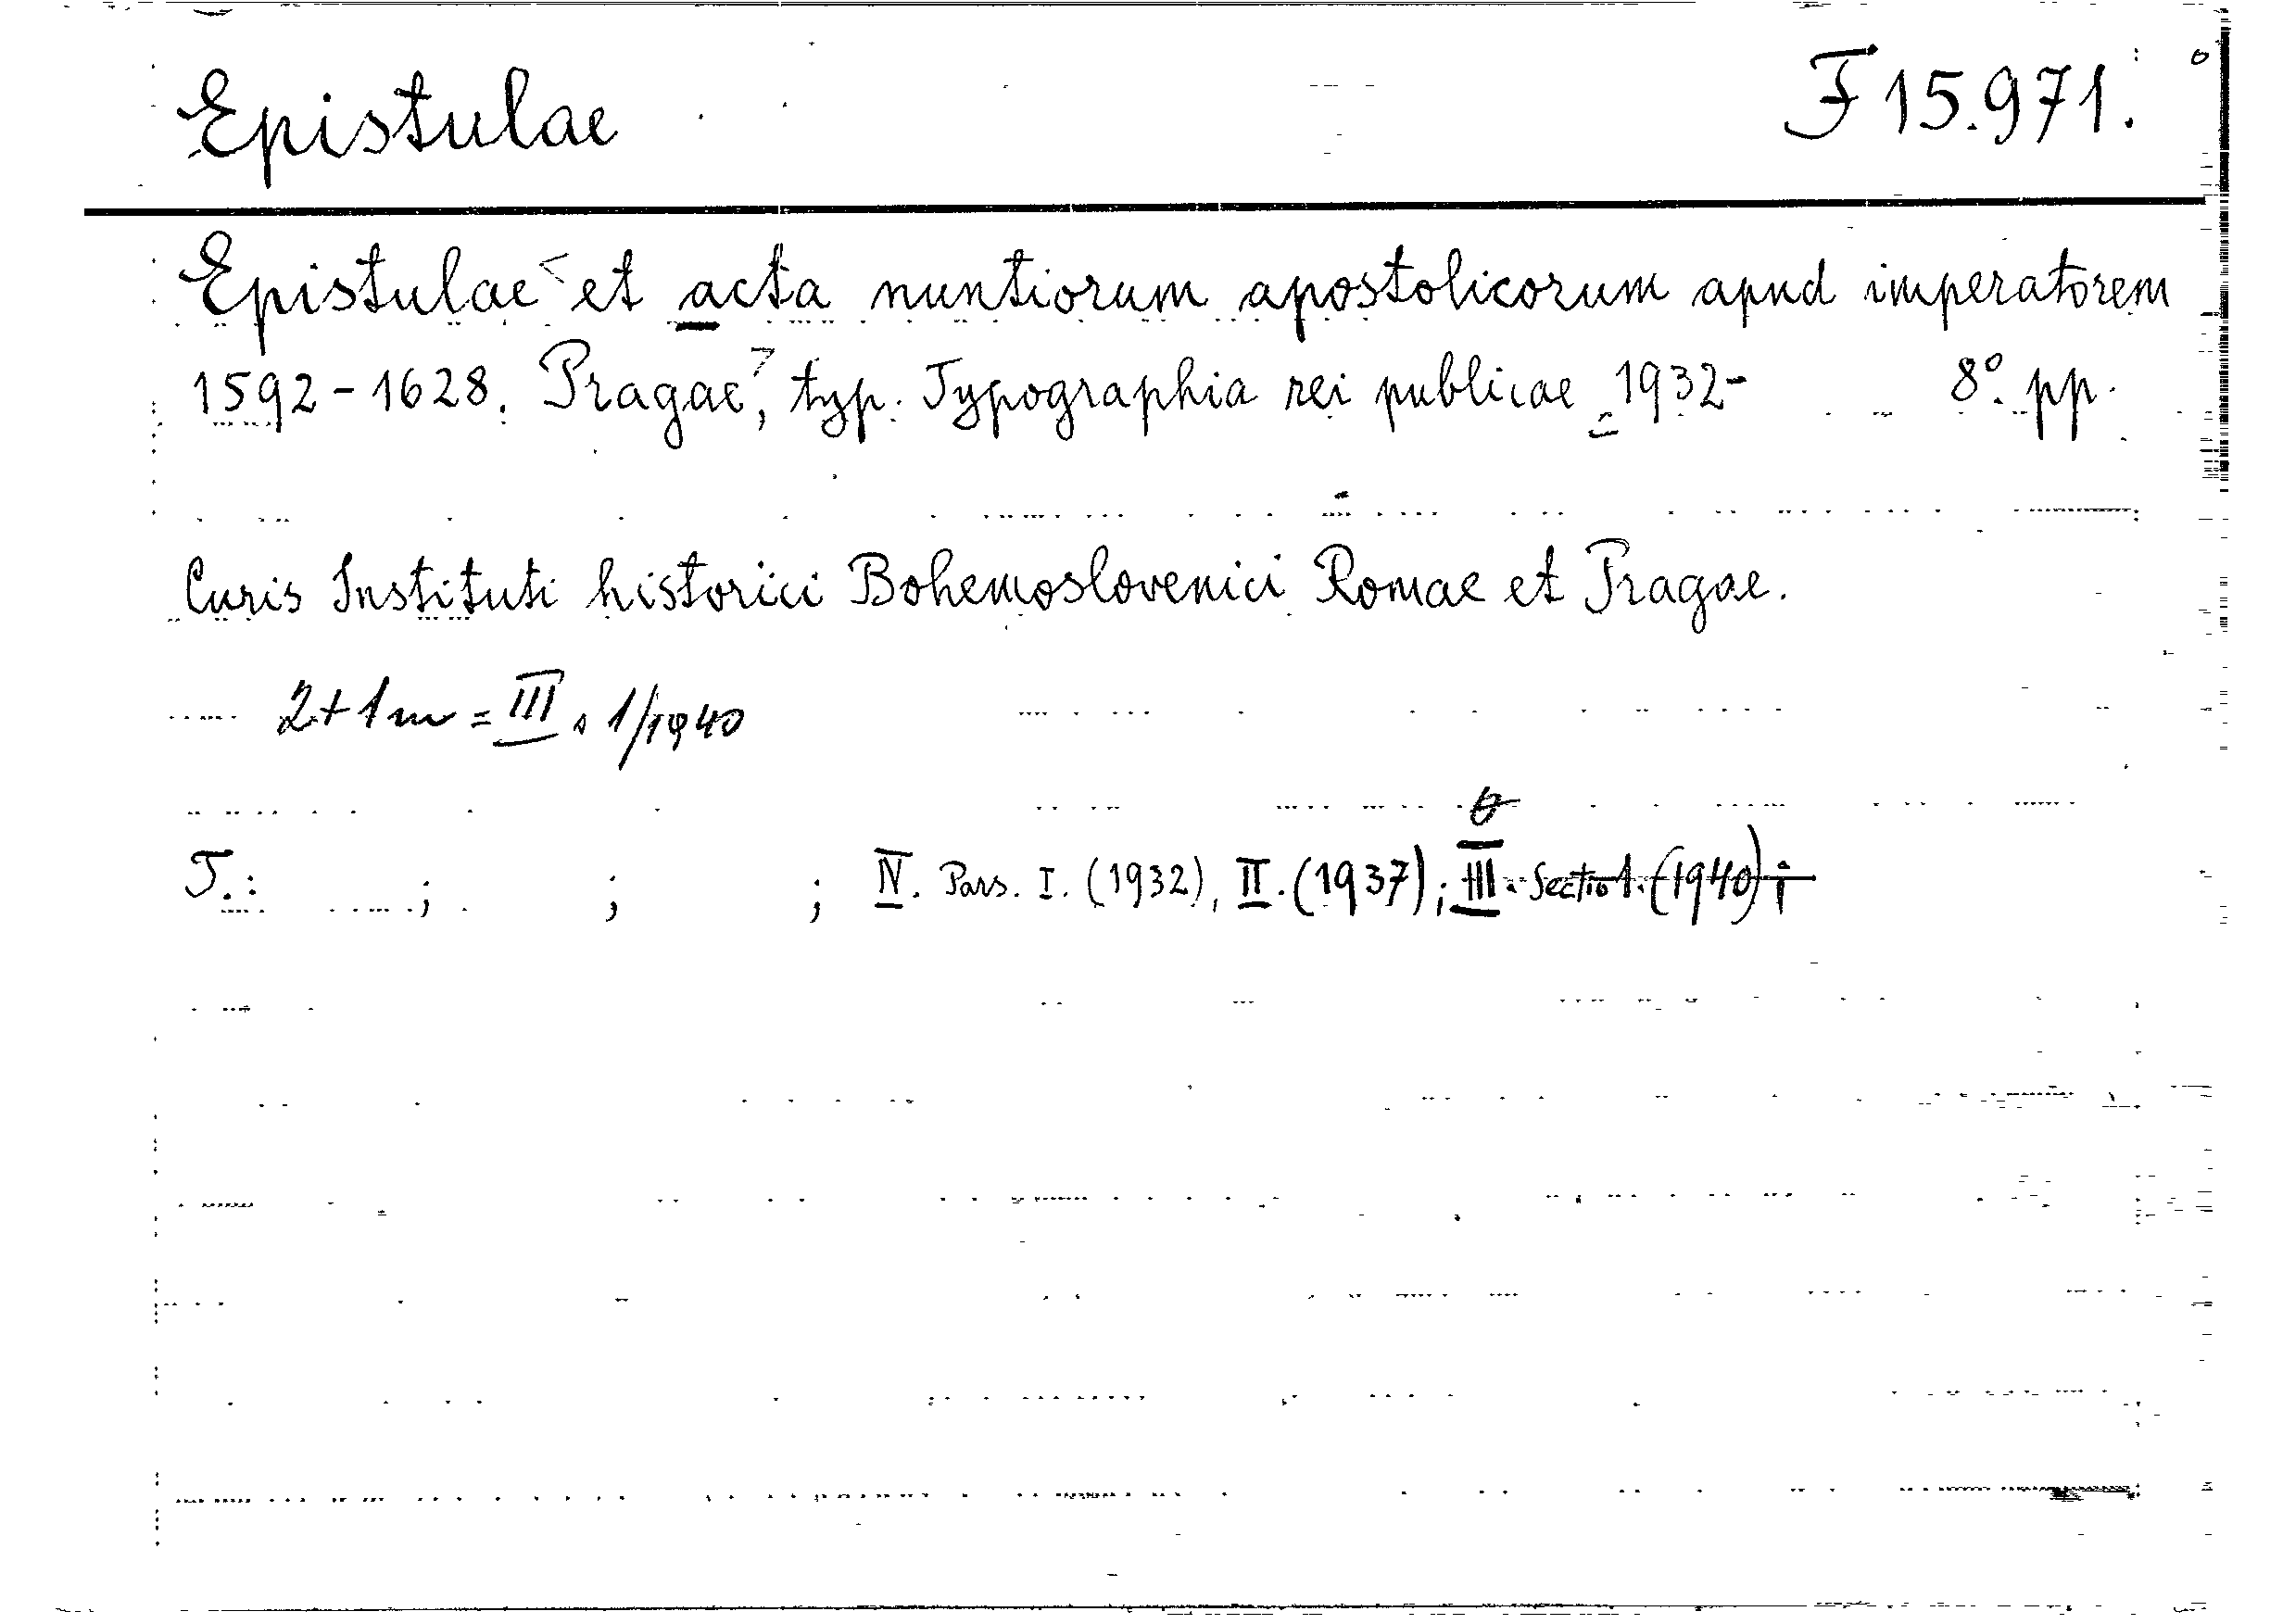 Epistulae F 15.971.
Epistulae < et acta nuntiorum apostolicorum apud imperatorem
1592-1628. Pragae, typ. Typographia rei publicae 1932- 8° pp.
Curis Instituti historici Bohemoslovenici Romae et Pragae.
2+1 m = III. 1/1940
T.: ; ; ; IV. Pars. I. (1932), II. (1937); III. Sectio 1. (1940);